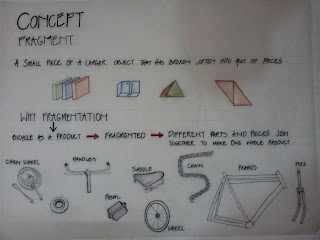 CONCEPT
FRAGMENT
A SMALL PIECE OF A LARGER OBJECT THAT HAS BROKEN, OFTEN INTO A LOT OF PIECES.
WHY FRAGMENTATION
BICYCLE AS A PRODUCT → FRAGMENTED → DIFFERENT PARTS AND PIECES JOIN
TOGETHER TO MAKE ONE WHOLE PRODUCT
CHAIN WHEEL
HANDLES
SADDLE
CHAIN
FRAMES
PEDAL
WHEEL